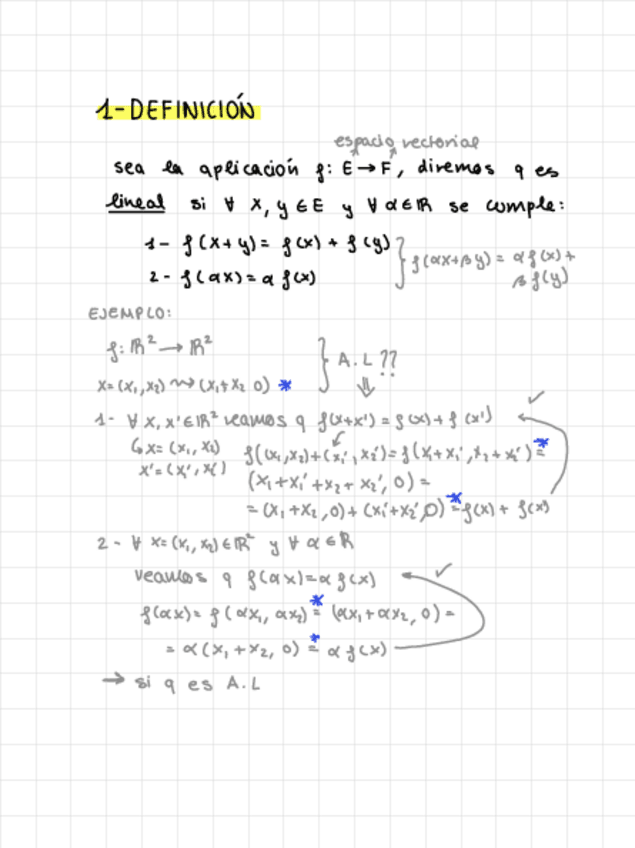 1-DEFINICIÓN
espacio vectorial
sea la aplicación f: E→F, diremos q es
lineal si ∀ x, y ∈ E y ∀ α ∈ ℝ se cumple:
1- f(x+y) = f(x) + f(y)
2- f(αx) = α f(x)
f(αx+βy) = α f(x) +
β f(y)
EJEMPLO:
f: ℝ² → ℝ²
x=(x₁,x₂) ⇝ (x₁+x₂ 0) *
A.L ??
⇓
1- ∀ x, x' ∈ ℝ² veamos q f(x+x') = f(x) + f(x') ✓
↳ x = (x₁, x₂)
x' = (x₁', x₂')
f((x₁,x₂)+(x₁',x₂') = f(x₁+x₁', x₂+x₂') =*
(x₁+x₁'+x₂+x₂', 0) =
= (x₁+x₂,0) + (x₁'+x₂',0) =* f(x) + f(x')
2- ∀ x=(x₁,x₂) ∈ ℝ² y ∀ α ∈ ℝ
veamos q f(αx) = α f(x) ✓
f(αx) = f(αx₁, αx₂) =* (αx₁+αx₂, 0) =
= α(x₁+x₂, 0) =* α f(x)
→ si q es A.L